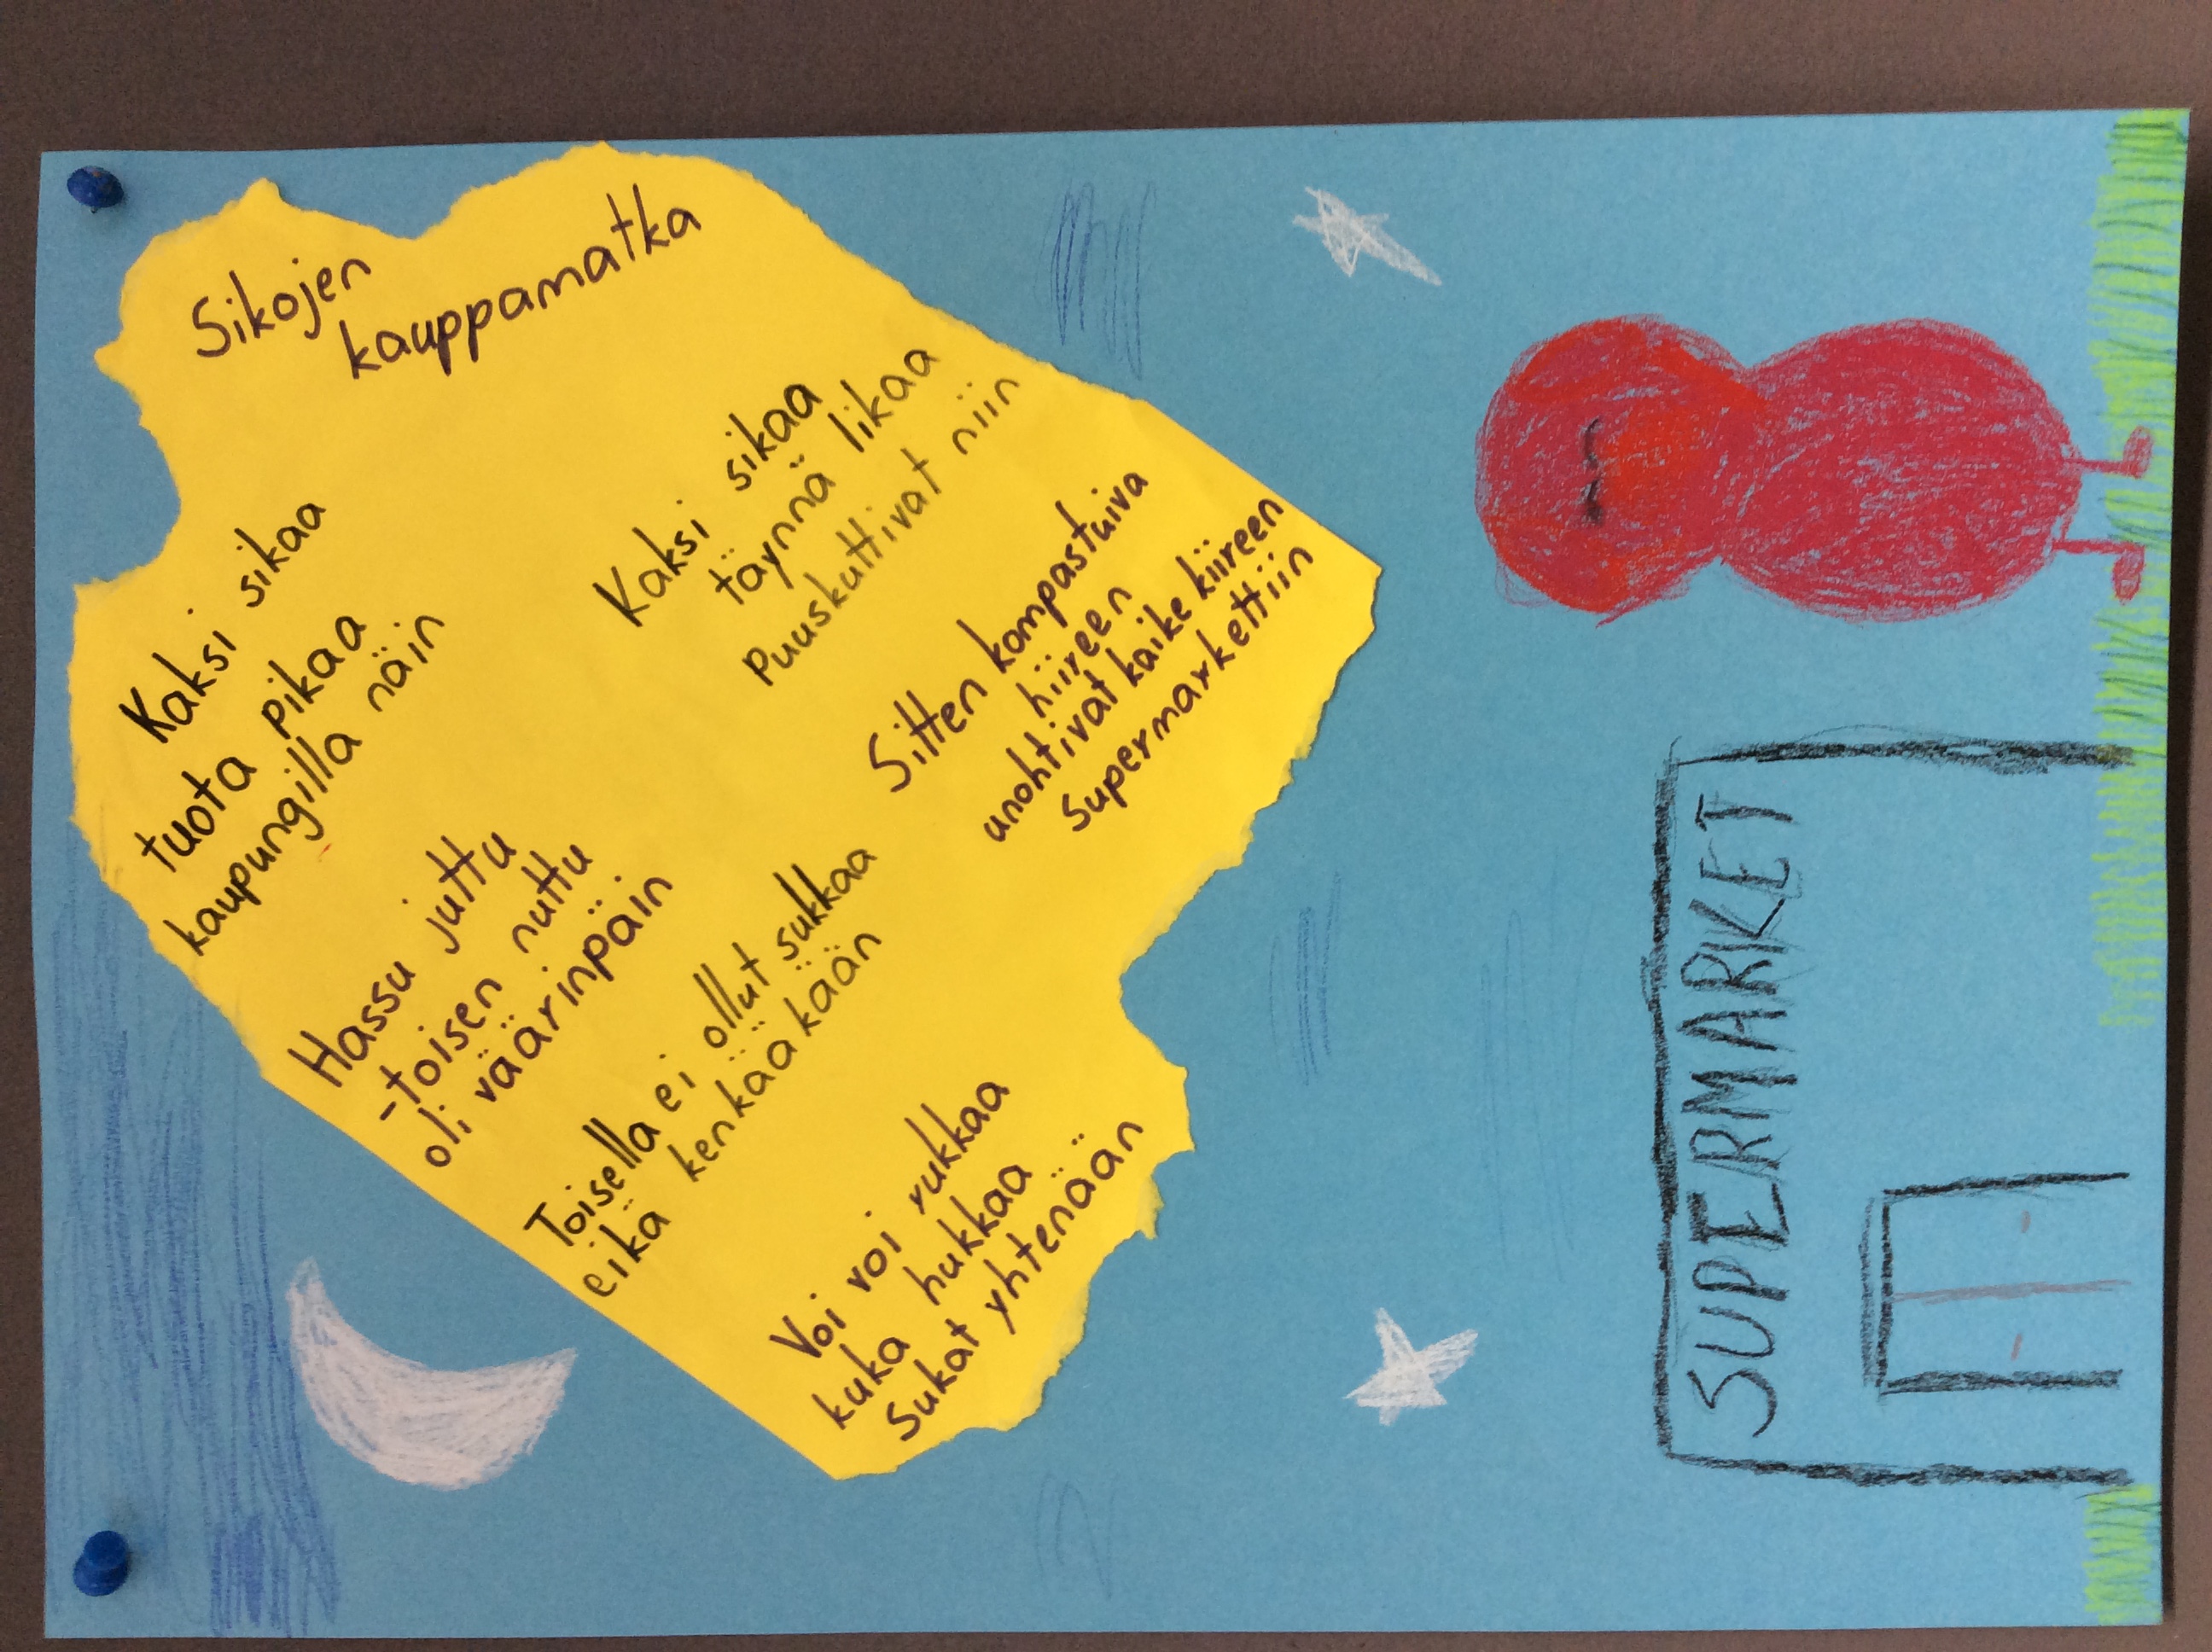 Sikojen
kauppamatka
Kaksi sikaa
tuota pikaa
kaupungilla näin
Hassu juttu
-toisen nuttu
oli väärinpäin
Toisella ei ollut sukkaa
eikä kenkääkään
Voi voi rukkaa
kuka hukkaa
Sukat yhtenään
Kaksi sikaa
täynnä likaa
Puuskuttivat niin
Sitten kompastuiva
hiireen
unohtivat kaike kiireen
Supermarkettiin
SUPERMARKET